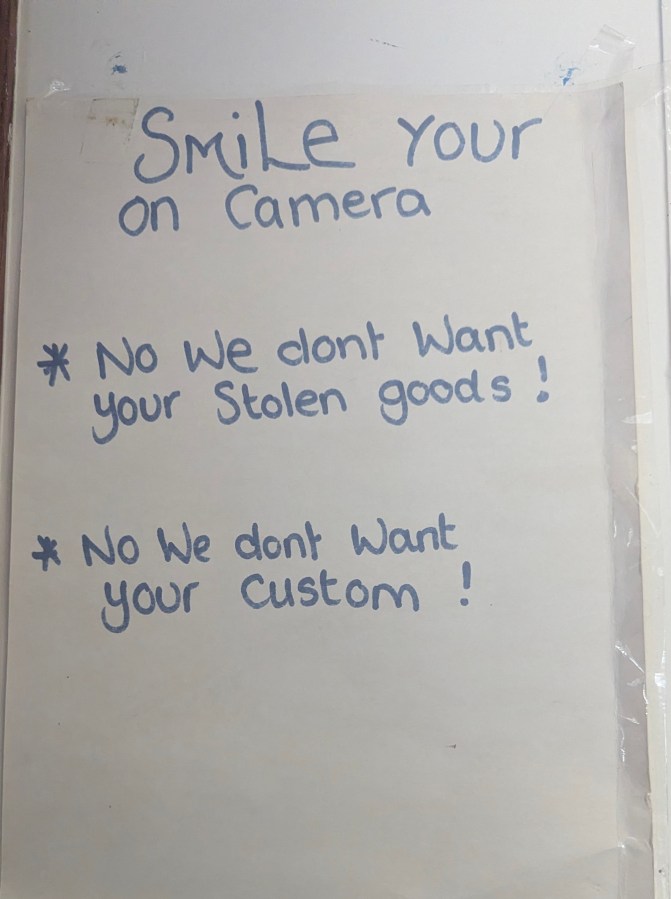 SMiLe YOUR
on Camera
* No We dont Want
your Stolen goods !
* No We dont Want
your Custom !